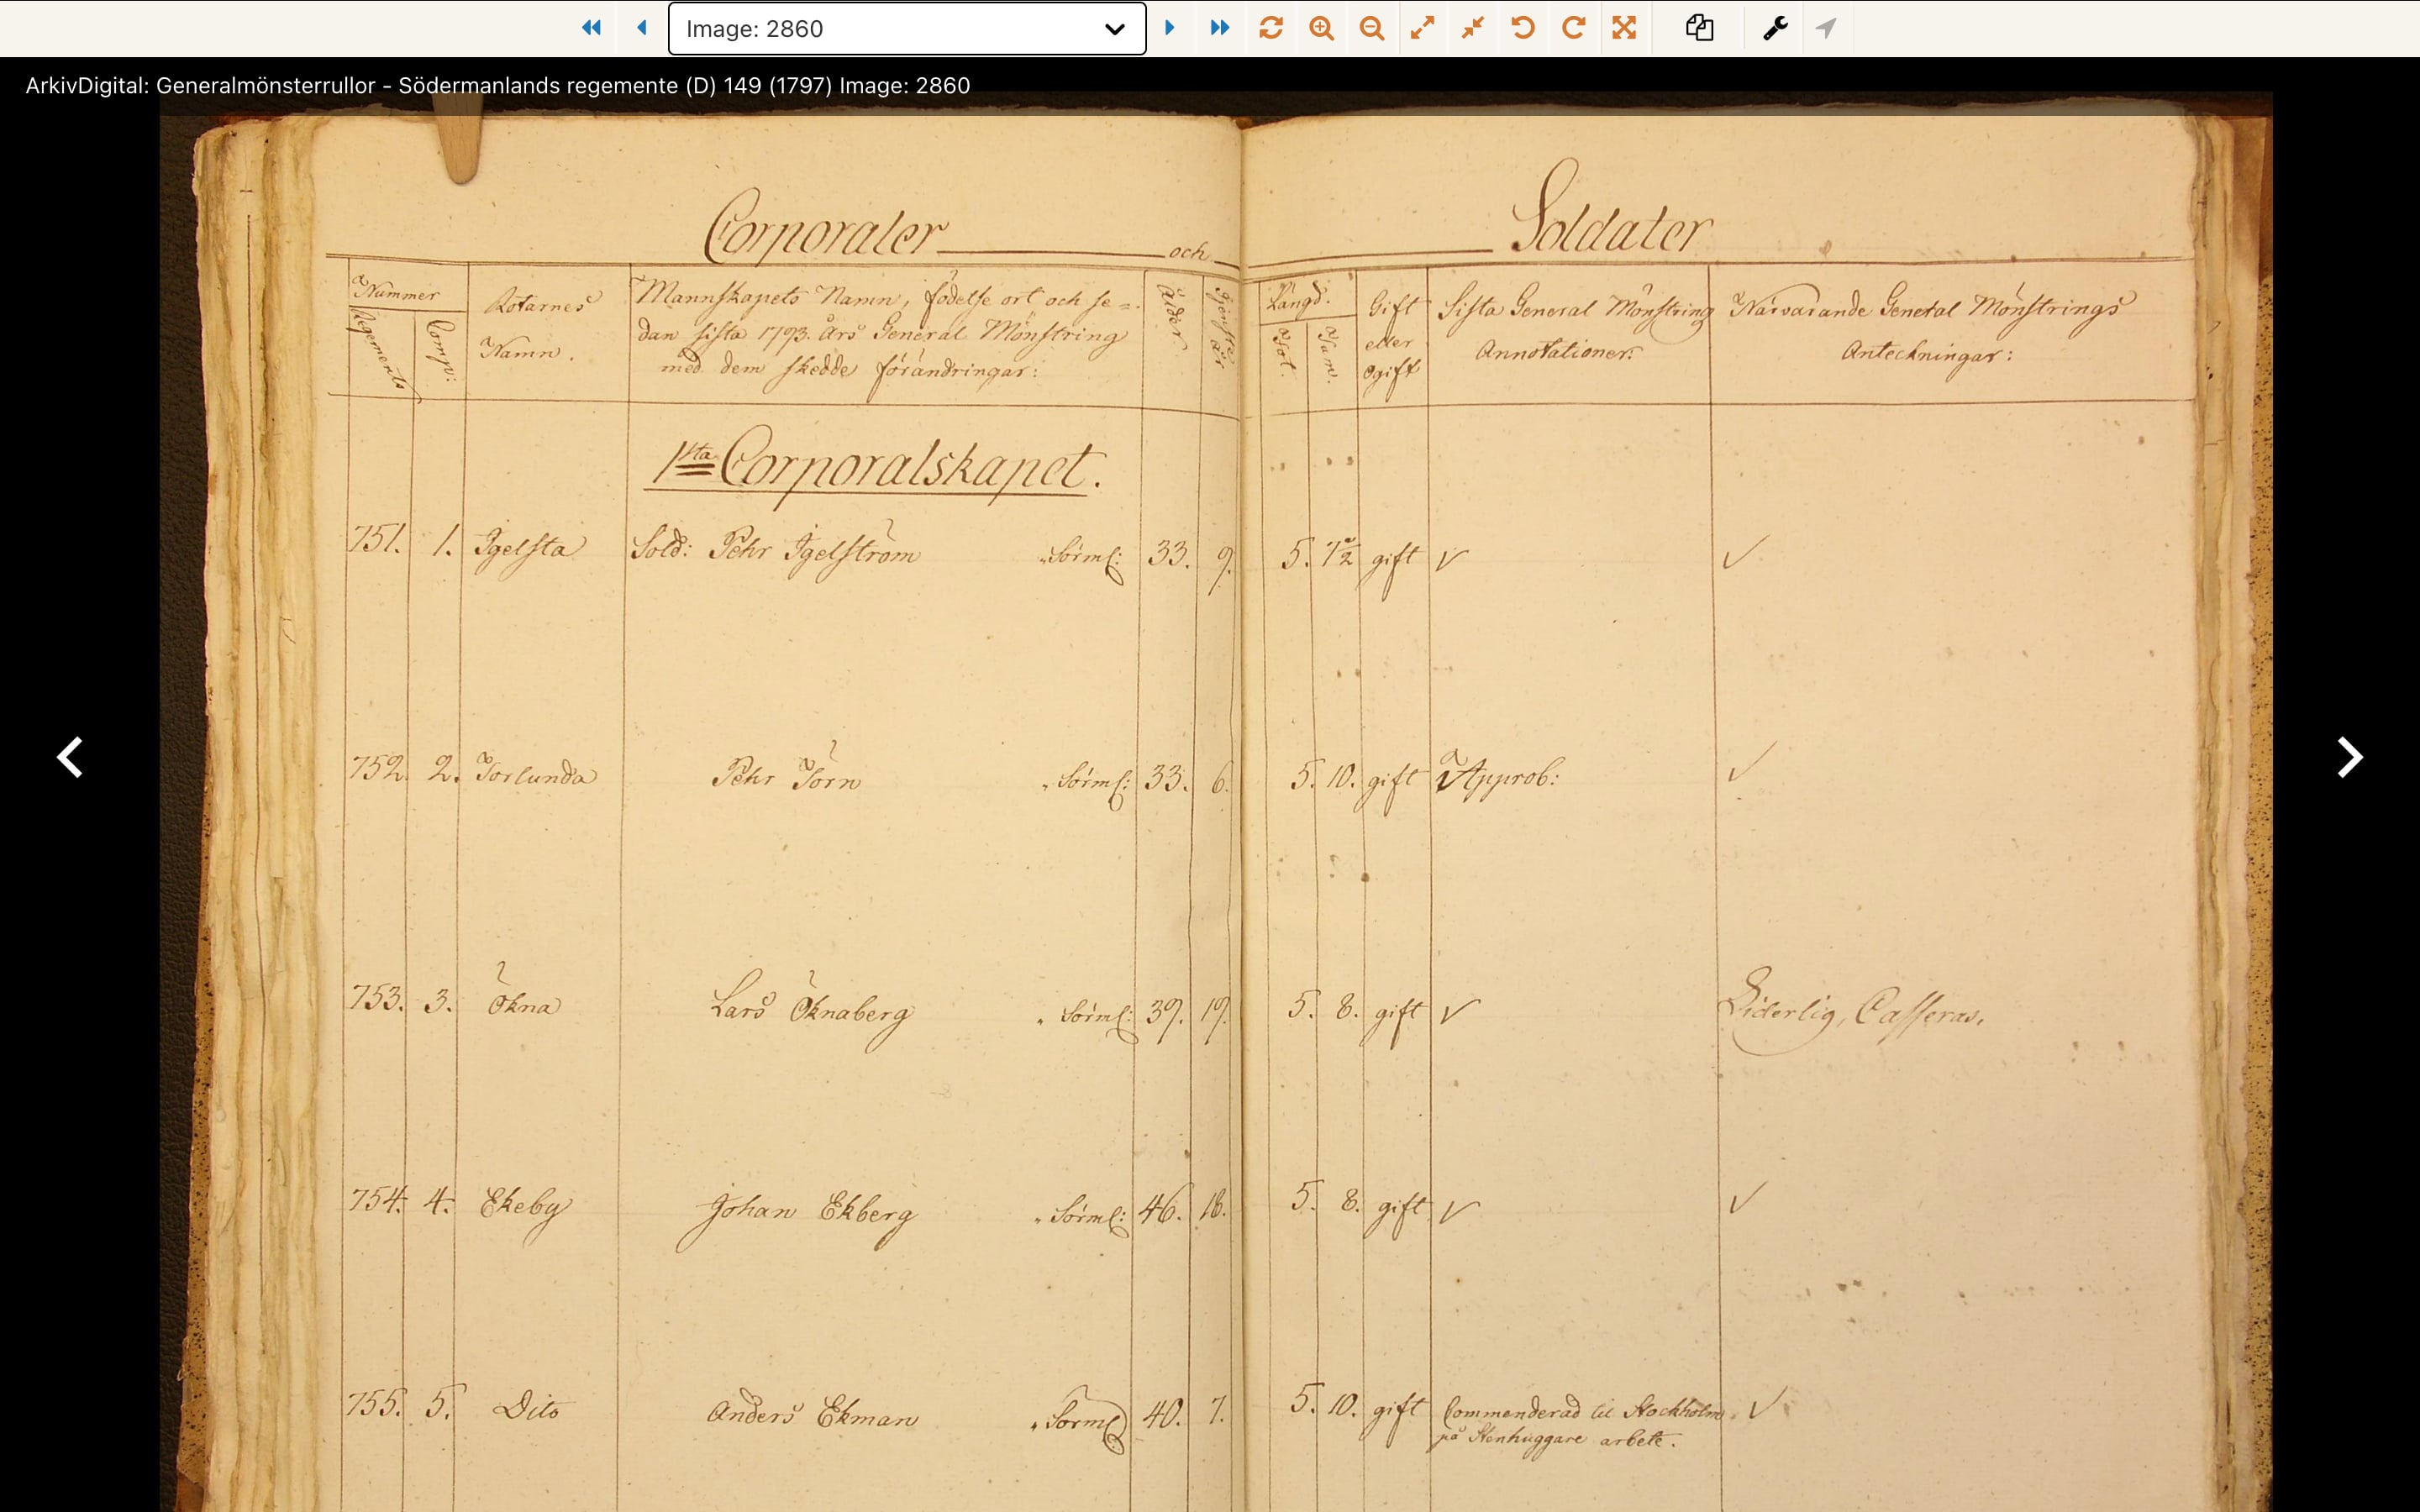 Image: 2860
ArkivDigital: Generalmönsterrullor - Södermanlands regemente (D) 149 (1797) Image: 2860
Corporaler och Soldater
Nummer
Regements
Comp:
Rotarnes
Namn.
Mannskapets Namn, födelse ort och se=
dan sista 1793. Års General Mönstring
med dem skedde förändringar:
Ålder
Tjenste år
Längd.
Fot.
Tum.
Gift
eller
ogift
Sista General Mönstring
Annotationer:
Närvarande General Mönstrings
Anteckningar:
1sta Corporalskapet.
751. 1. Igelsta Sold: Pehr Igelström Sörml: 33. 9. 5. 7½ gift √ √
752. 2. Torlunda Pehr Törn Sörml: 33. 6. 5. 10. gift Approb: √
753. 3. Ökna Lars Öknaberg Sörml: 39. 19. 5. 8. gift √ Liderlig, Casseras.
754. 4. Ekeby Johan Ekberg Sörml: 46. 18. 5. 8. gift √ √
755. 5. Dito Anders Ekman Sörml: 40. 7. 5. 10. gift Commenderad til Stockholm √
på Stenhuggare arbete.